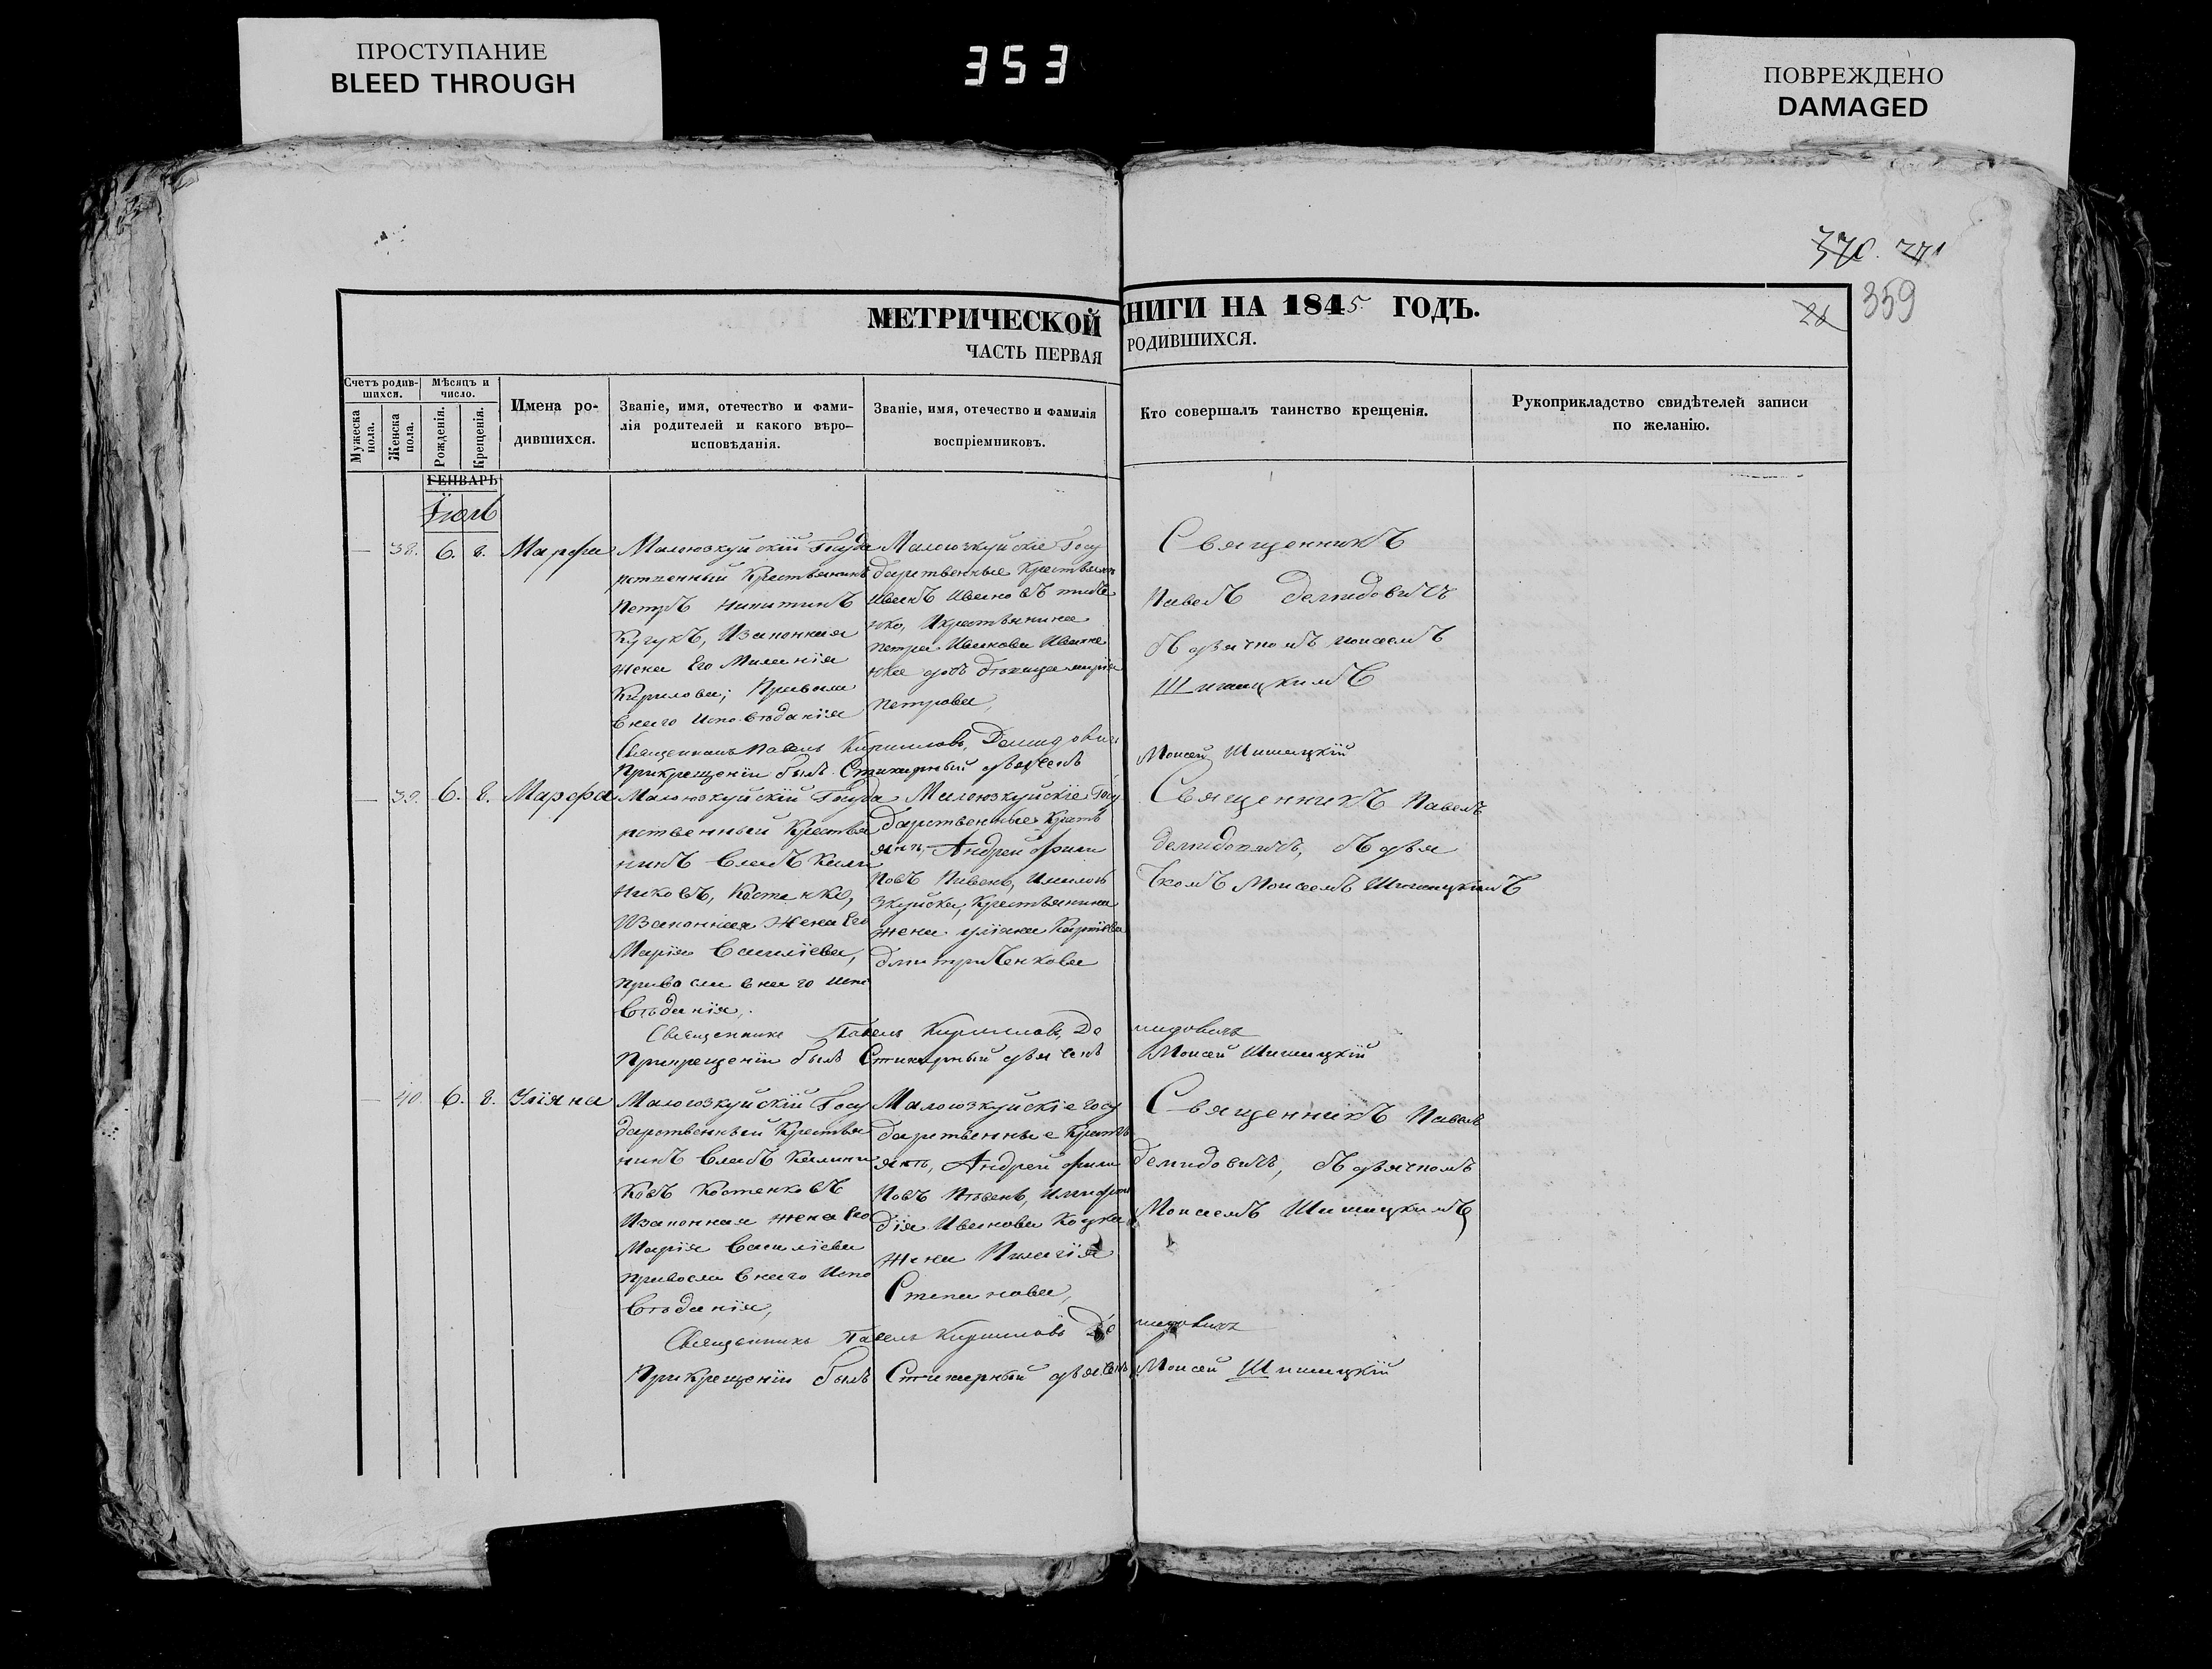 ПРОСТУПАНИЕ
BLEED THROUGH
353
ПОВРЕЖДЕНО
DAMAGED
370.
359
МЕТРИЧЕСКОЙ КНИГИ НА 1845 ГОДЪ.
ЧАСТЬ ПЕРВАЯ РОДИВШИХСЯ.
Счетъ родив-
шихся.
Мужеска
пола.
Женска
пола.
Мѣсяцъ и
число.
Рожденія.
Крещенія.
Имена ро-
дившихся.
Званіе, имя, отечество и фами-
лія родителей и какого вѣро-
исповѣданія.
Званіе, имя, отечество и фамилія
воспріемниковъ.
Кто совершалъ таинство крещенія.
Рукоприкладство свидѣтелей записи
по желанію.
ГЕНВАРЬ
Іюль
— 38. 6. 8. Марфа
Малоюзкуйскій Госуда
рственный Крестьянинъ
Петръ Никитинъ
Кугукъ, Изаконная
жена Его Меланія
Кирилова; Правосла
внаго Исповѣданія
Малоюзкуйскіе Госу
дарственные Крестьяне
Иванъ Ивановъ
нко, Икрестьянина
Петра Иванова
Петрова,
Священникъ
Павелъ Демидовичъ
съ дьячкомъ Моисеемъ
Шишацкимъ
Священникъ Павелъ Кирилловъ Демидовичъ
Прикрещеніи былъ Стихарный дьячекъ Моисей Шишацкій
— 39. 6. 8. Марфа
Малоюзкуйскій Госуда
рственный Крестья
нинъ Савъ Кали
никовъ, Костенко,
Изаконная жена Его
Марія Василіева,
Правосла внаго испо
вѣданія,
Малоюзкуйскіе Госу
дарственные Кресть
янъ, Андрей Фили
повъ Пивень, Ималою
зкуйска, Крестьянина
жена Уліана
Дмитрѣнкова
Священникъ Павелъ
Демидовичъ, съ дья
чкомъ Моисеемъ Шишацкимъ
Священникъ Павелъ Кирилловъ Демидовичъ
Прикрещеніи былъ Стихарный дьячекъ Моисей Шишацкій
— 40. 6. 8. Уліяна
Малоюзкуйскій Госу
дарственный Крестья
нинъ Савъ Калини
ковъ Костенковъ
Изаконная жена Его
Марія Василіева
Правосла внаго Испо
вѣданія,
Малоюзкуйскіе госу
дарственные Кресть
янъ, Андрей Фили
повъ Пѣвень,
дія Иванова
жена Пелагія
Степанова,
Священникъ Павелъ
Демидовичъ, съ дьячкомъ
Моисеемъ Шишацкимъ
Священникъ Павелъ Кирилловъ Демидовичъ
Прикрещеніи былъ Стихарный дьячекъ Моисей Шишацкій